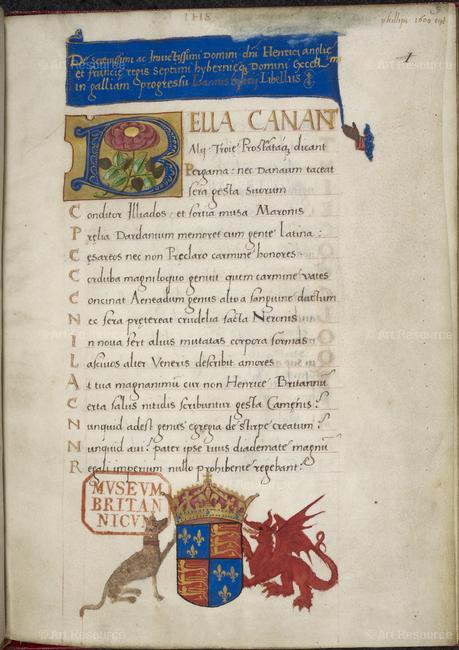 IHS
phillipps 1600
1
Serenissimi ac Invictissimi Domini dni Henrici anglię
et francię regis Septimi hybernięq Domini Excell
in galliam progressu Libellus
BELLA CANANT
Alij: Troię Prostrataq dicant
Pergama: nec Danaum taceat
fera gesta suorum
Conditor Illiados: et fortia musa Maronis
Prelia Dardanium memoret cum gente Latina:
Cesareos nec non Preclaro carmine honores
Corduba magniloquo genuit quem carmine vates
Concinat Aeneadum genus alto a sanguine ductum
Nec fera pretereat crudelia facta Neronis
In noua fert alius mutatas corpora formas
Lasciuos alter Veneris describit amores
At tua magnanimū cur non Henrice Britannū
Certa salus nitidis scribuntur gesta Camenis?
Nunquid adest genus egregia de stirpe creatum?
Nunquid aui? pater ipse tuus diademate magnū
Regali imperium nullo prohibente regebant?
MVSEVM
BRITAN
NICVM
© Art Resource